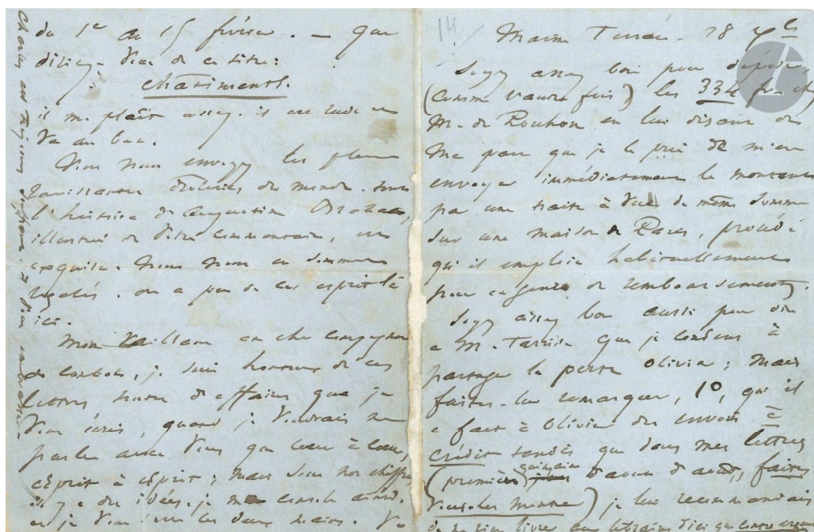 du 1er au 15 février. — Que
dites-vous de ce titre:
Châtiments.
il me plaît assez. il est rude et
va au but.
Vous nous envoyez les plus
drôleries du monde.
l'histoire d'Augustin
illustrée de votre commentaire, est
exquise. Nous nous en sommes
régalés. on a pas de cet esprit là
ici.
Mon vaillant et cher compagnon
de combat, je suis honteux de ces
lettres d'affaires que je
vous écris, quand je voudrais ne
parler avec vous que cœur à cœur,
esprit à esprit; mais sous nos chiffres
il y a des idées. je me console ainsi.
et je vous serre les deux mains. V.
Charles est toujours
14
Marine Terrace. 28
Soyez assez bon pour
(comme l'autre fois) les 334 fr.
M. de en leur disant de
ma part que je le prie de m'en
envoyer immédiatement le montant
par une traite à vue de même somme
sur une maison de procédé
qu'il emploie habituellement
pour ce genre de remboursements.
Soyez assez bon aussi pour dire
à M. que je consens à
partager la perte Olivier; mais
faites-lui remarquer, 1o, qu'il
a fait à Olivier des envois à
crédit tandis que dans mes lettres
(première quinzaine d'août, faites
) je lui recommandais
de ne rien livrer aux libraires d'ici que contre argent